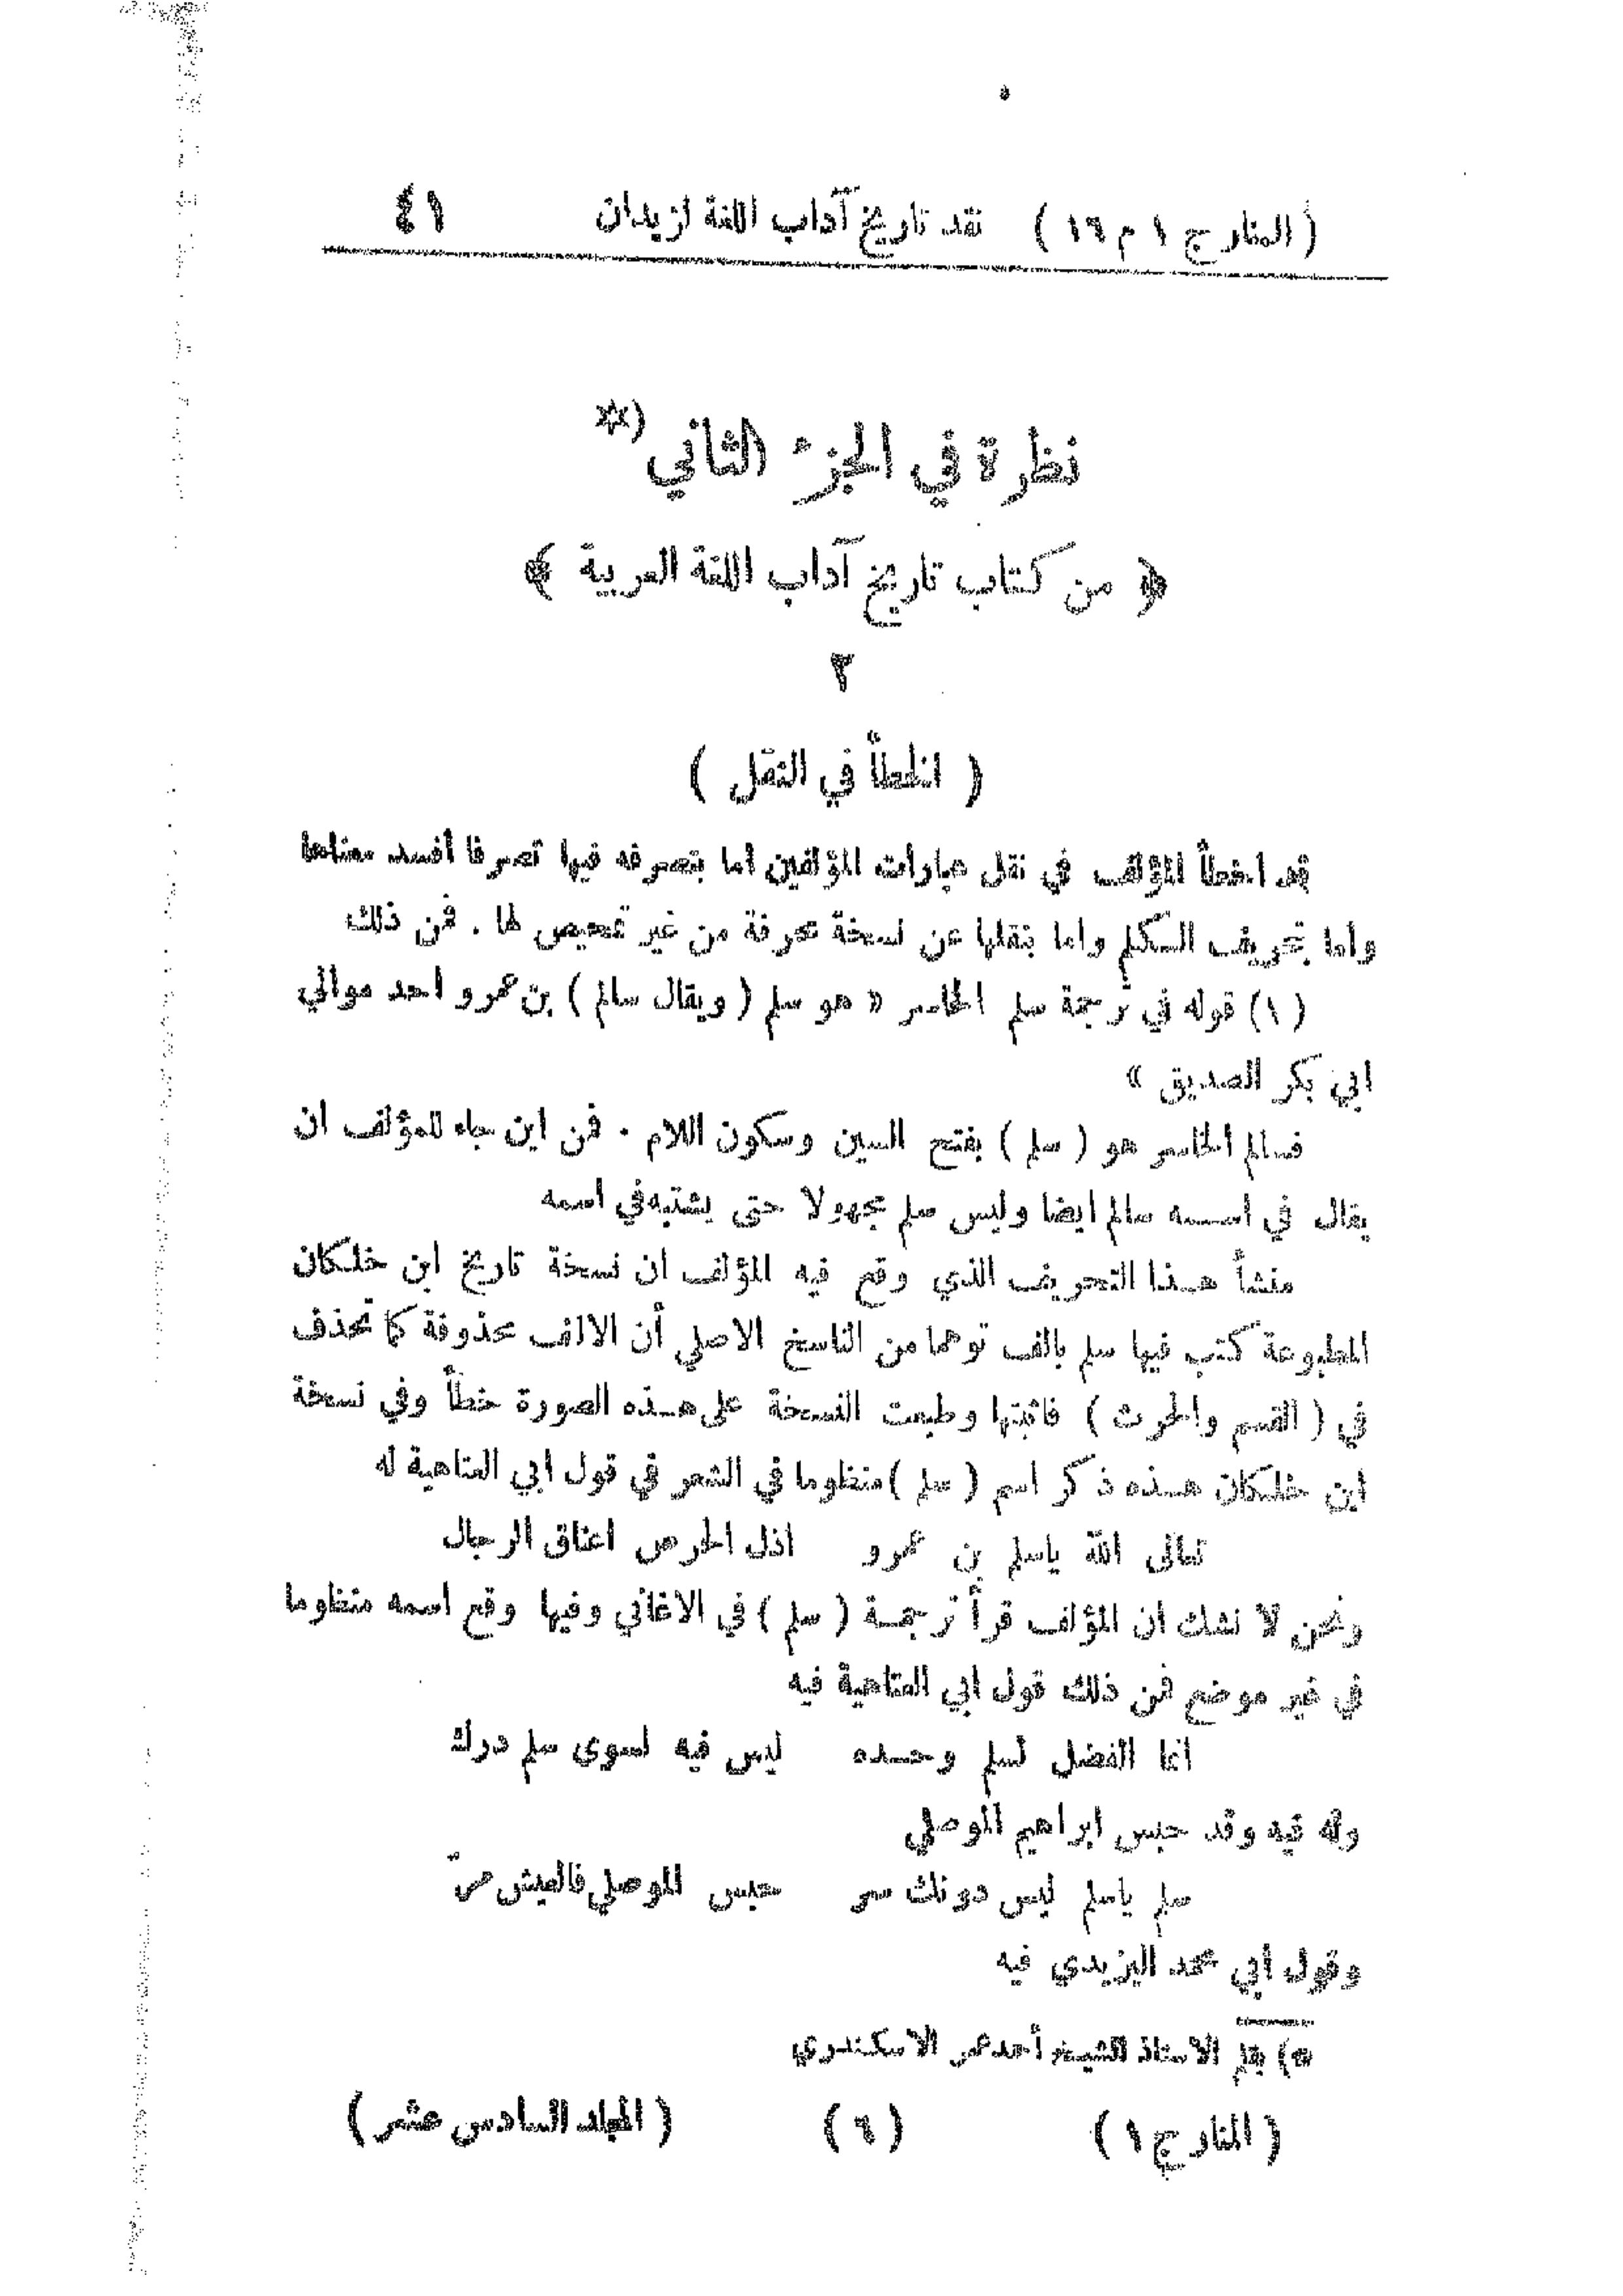 (المنار ج ١ م ١٦) نقد تاريخ آداب اللغة لزيدان ٤١
نظرة في الجزء الثاني *)
﴿ من كتاب تاريخ آداب اللغة العربية ﴾
٢
( الخطأ في النقل )
قد اخطأ المؤلف في نقل عبارات المؤلفين اما بتصرفه فيها تصرفا أفسد معناها
واما بتحريف الكلم واما بنقلها عن نسخة محرفة من غير تمحيص لها . فمن ذلك
(١) قوله في ترجمة سلم الخاسر « هو سلم ( ويقال سالم ) بن عمرو احد موالي
ابي بكر الصديق »
فسالم الخاسر هو ( سلم ) بفتح السين وسكون اللام . فمن اين جاء للمؤلف ان
يقال في اسمه سالم ايضا وليس سلم مجهولا حتى يشتبه في اسمه
منشأ هذا التحريف الذي وقع فيه المؤلف ان نسخة تاريخ ابن خلكان
المطبوعة كتب فيها سلم بالف توهما من الناسخ الاصلي أن الالف محذوفة كما تحذف
في ( القسم والحرث ) فاثبتها وطبعت النسخة على هذه الصورة خطأ وفي نسخة
ابن خلكان هذه ذكر اسم ( سلم ) منظوما في الشعر في قول ابي العتاهية له
تعالى الله ياسلم بن عمرو اذل الحرص اعناق الرجال
ونحن لا نشك ان المؤلف قرأ ترجمة ( سلم ) في الاغاني وفيها وقع اسمه منظوما
في غير موضع فمن ذلك قول ابي العتاهية فيه
انما الفضل لسلم وحده ليس فيه لسوى سلم درك
وله فيه وقد حبس ابراهيم الموصلي
سلم ياسلم ليس دونك سر حبس الموصلي فالعيش مرّ
وقول أبي محمد اليزيدي فيه
*) بقلم الاستاذ الشيخ أحمد عمر الاسكندري
( المنار ج ١ ) ( ٦ ) ( المجلد السادس عشر )